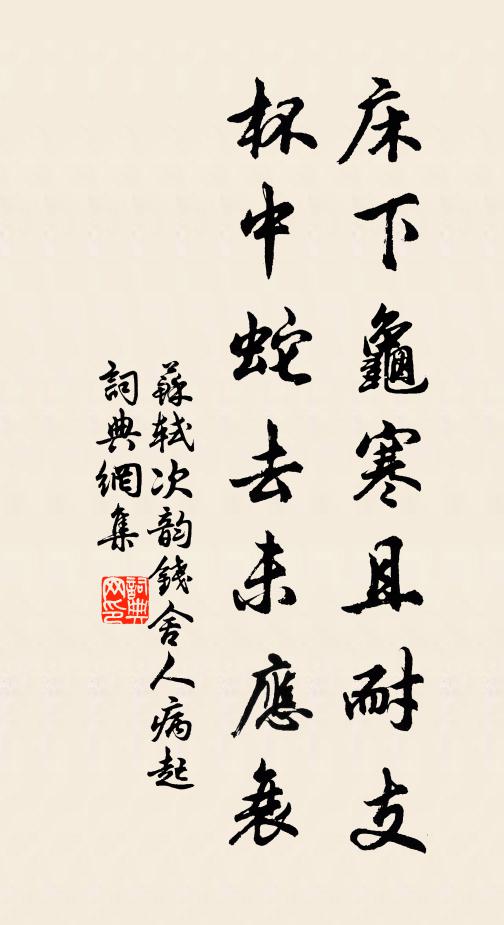 床下龜寒且耐支
杯中蛇去未應衰
蘇軾次韵錢舍人病起
詞典網集
詞典網印